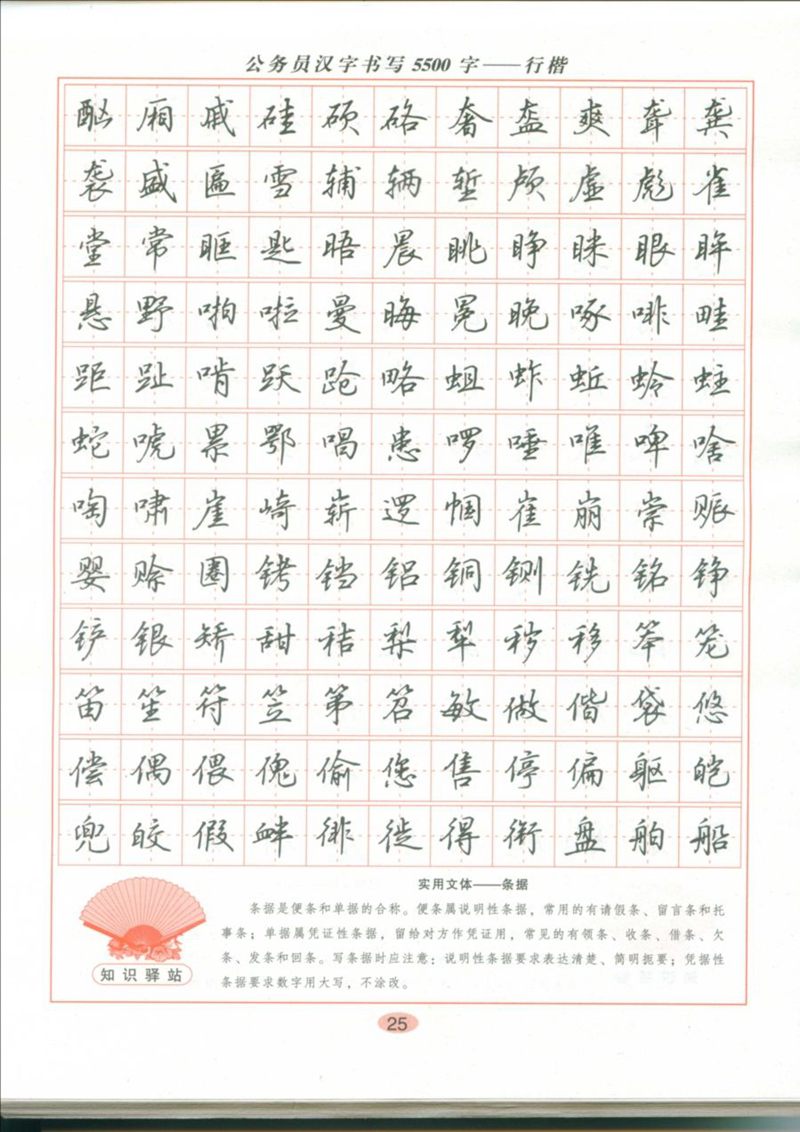 公务员汉字书写 5500 字——行楷
酗厢戚硅硕硌奢盔爽聋龚
袭盛匾雪辅辆堑颅虚彪雀
堂常眶匙晤晨眺睁眯眼眸
悬野啪啦曼晦冕晚啄啡畦
距趾啃跃跄略蛆蚱蚯蛉蛀
蛇唬累鄂唱患啰唾唯啤啥
啕啸崖崎崭逻帼崔崩崇赈
婴赊圈铐铛铝铜铡铣铭铮
铲银矫甜秸梨犁秽移笨笼
笛笙符笠第笤敏做偕袋悠
偿偶偎傀偷您售停偏躯皑
兜皎假衅徘徙得衔盘舶船
实用文体——条据
条据是便条和单据的合称。便条属说明性条据，常用的有请假条、留言条和托
事条；单据属凭证性条据，留给对方作凭证用，常见的有领条、收条、借条、欠
条、发条和回条。写条据时应注意：说明性条据要求表达清楚、简明扼要；凭据性
条据要求数字用大写，不涂改。
知识驿站
25